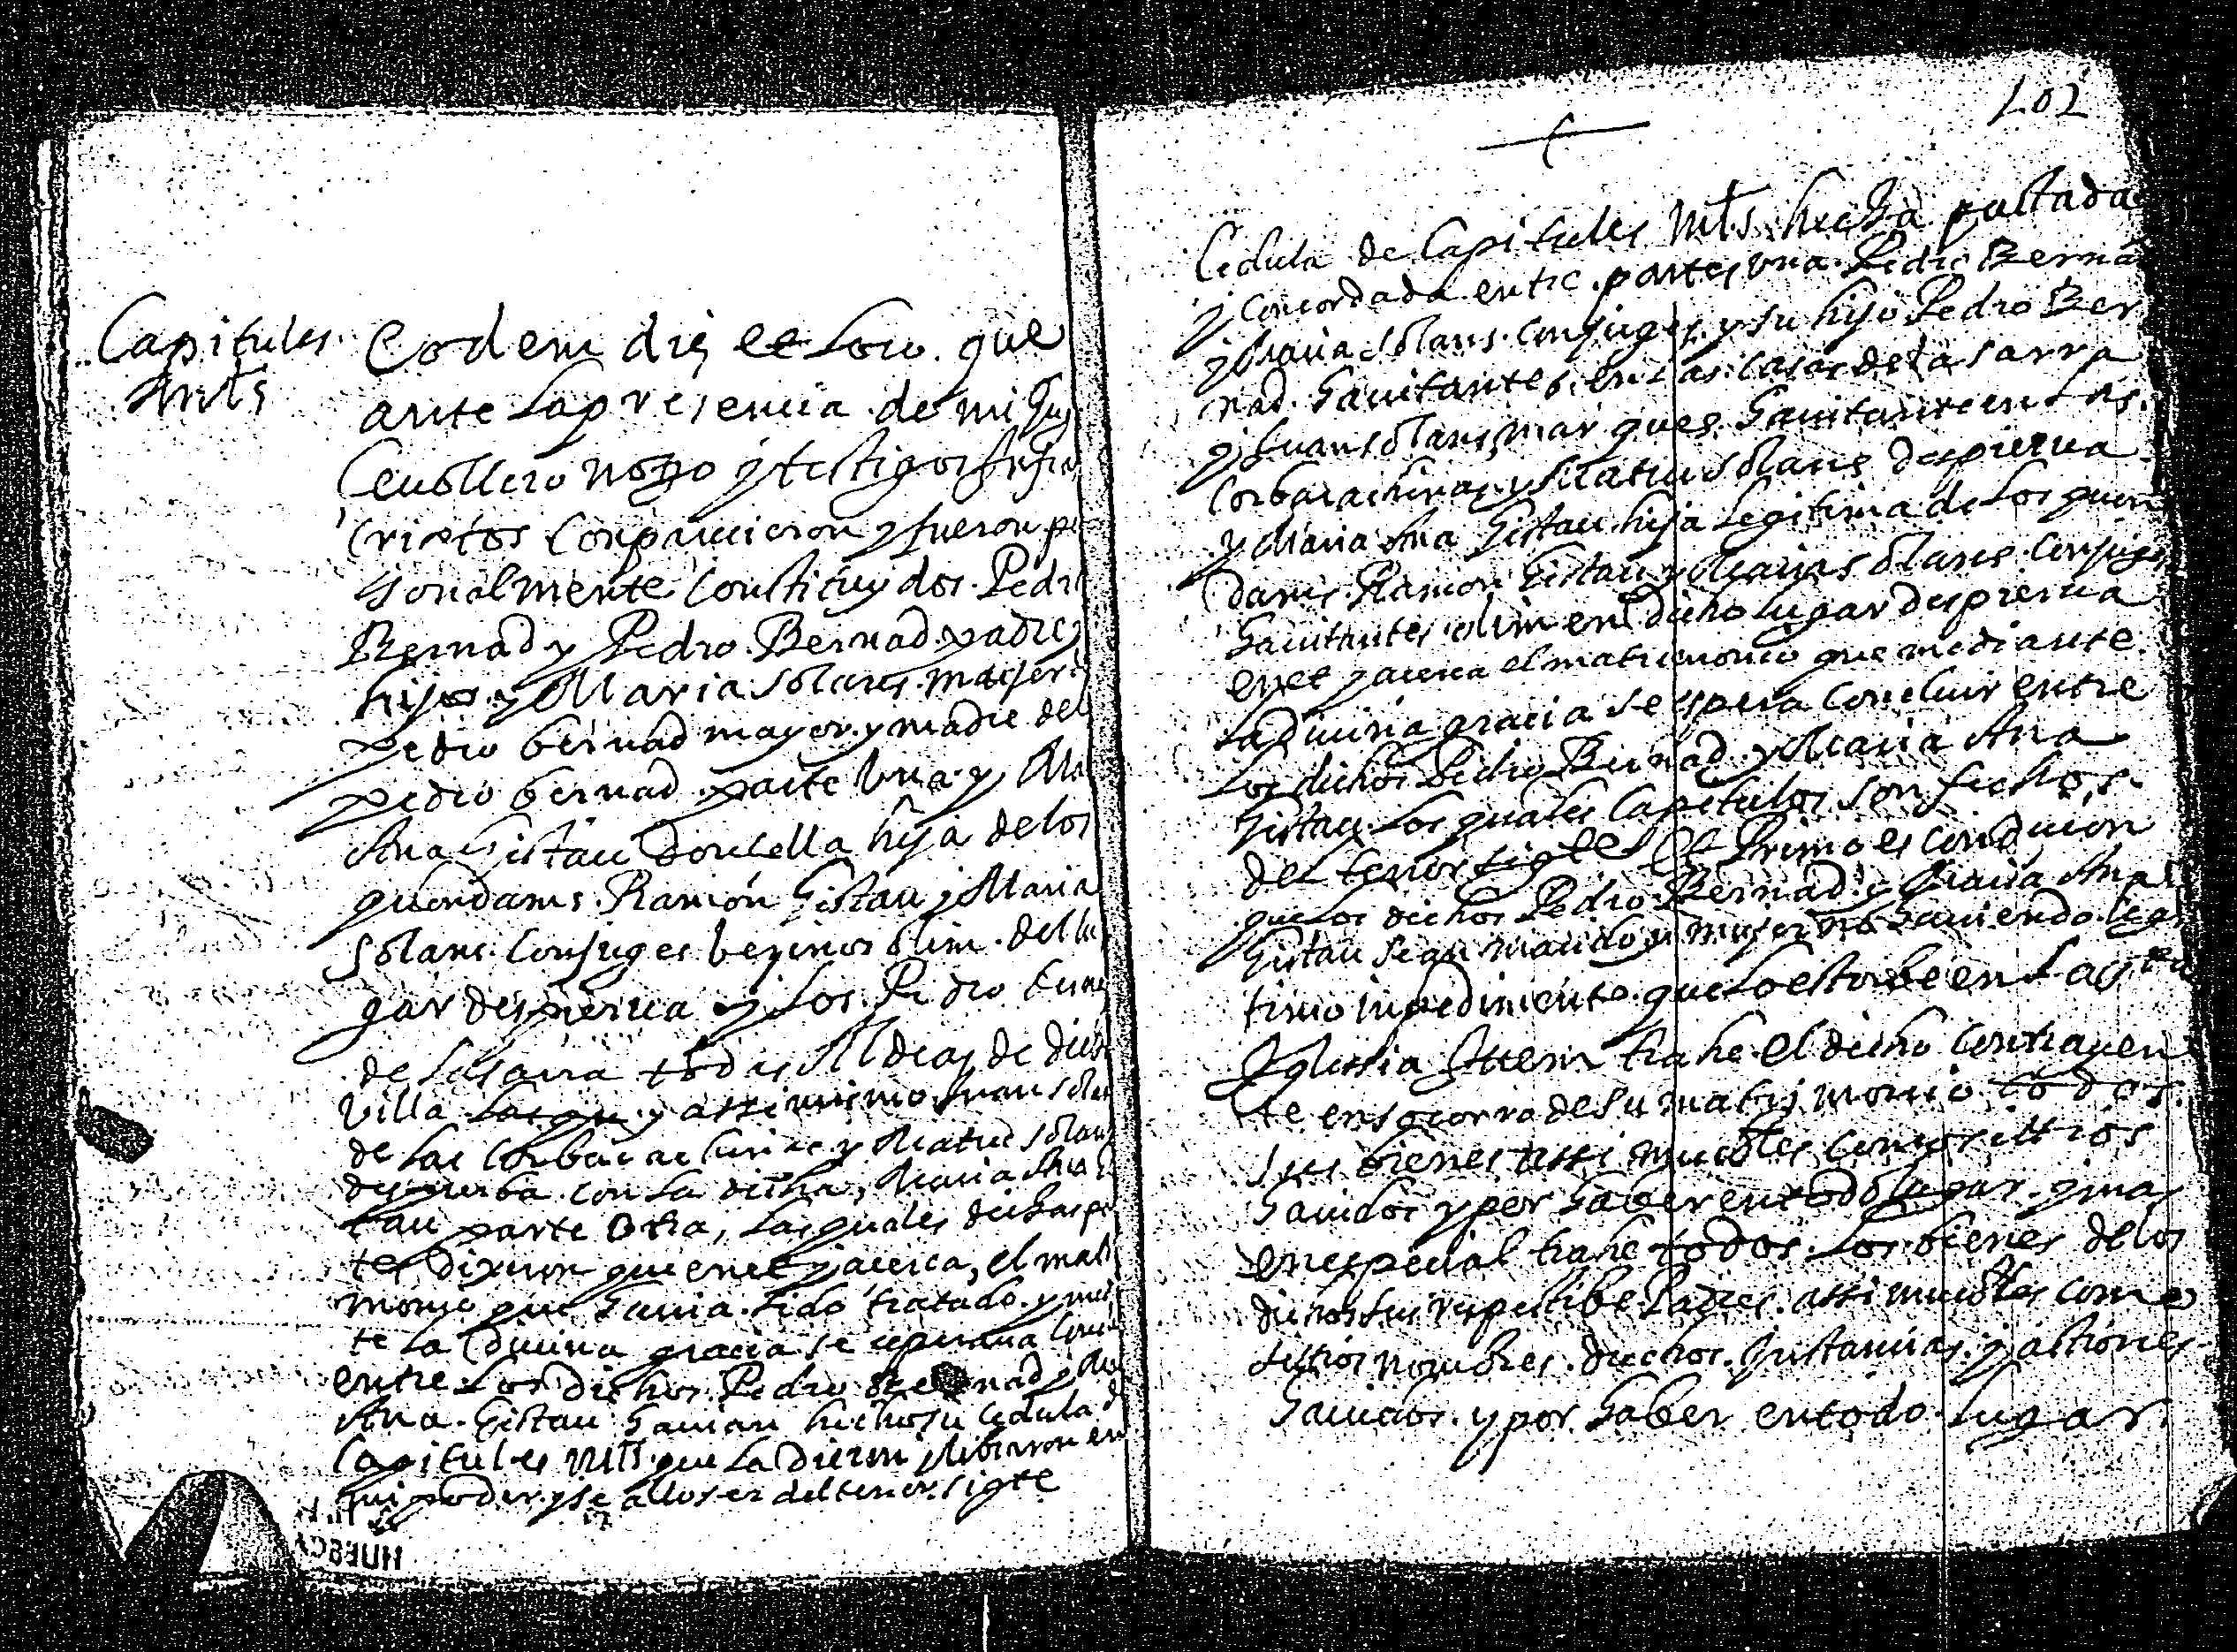 Capitules
mtls
Eodem die et loco que
ante la presencia de mi Juº
Cevollero nogo y testigos infra
criptos conparecieron y fueron per
sonalmente constituydos Pedro
Bernad y Pedro Bernad padre y
hijo y Maria Solans mujer de
pedro bernad mayor y madre del
pedro bernad parte una y Ma
Ana Gistau doncella hija de los
quondams Ramon Gistau y Maria
Solans conjuges beçinos olim del lu
gar despierua y los Pedro
de Lasarra todos Aldeas de dicha
villa y assi mismo Juan Solans
de las Corbaiachinas y Matheu Solans
despierba con la dicha Maria Ana Gis
tau parte otra, las quales dichas par
tes dixeron que en et y acerca, el matri
monio que hauia sido tratado y median
te la diuina gracia se esperaua concluir
entre los dichos Pedro Bernad y Ma
Ana Gistau hauian hecho su cedula de
Capitules mtls que la dieron y libraron en
mi poder y se allo ser del tenor sigte
HUESCA
102
Cedula de Capitules mtls hecha pactada
y concordada entre partes una Pedro Bernad
y Maria Solans conjuges y su hijo Pedro Ber
nad hauitantes en las casas de la sarra
y Juan Solans marques hauitante en las
Corbaiachinas y Matheu Solans despierua
y Maria Ana Gistau hija legitima de los quon
dams Ramon Gistau y Maria Solans conjuges
hauitantes olim en dicho lugar despierua
en et y acerca el matrimonio que mediante
la diuina gracia se espera concluir entre
los dichos Pedro Bernad y Maria Ana
Gistau los quales Capitulos son fechos
del tenor sigte Et Primo es condicion
que los dichos Pedro Bernad y Maria Ana
Gistau sean marido y mujer no hauiendo legi
timo inpedimiento que lo estorbe en la sta
Iglesia Ittem trahe el dicho contrayen
te en socorro de su matrimonio todos
sus bienes assi muebles como sittios
hauidos y por haber en todo lugar y mas
en especial trahe todos los bienes de los
dichos sus respectibe Padres assi muebles como
sittios nombres drechos instancias y actiones
hauidos y por haber en todo lugar